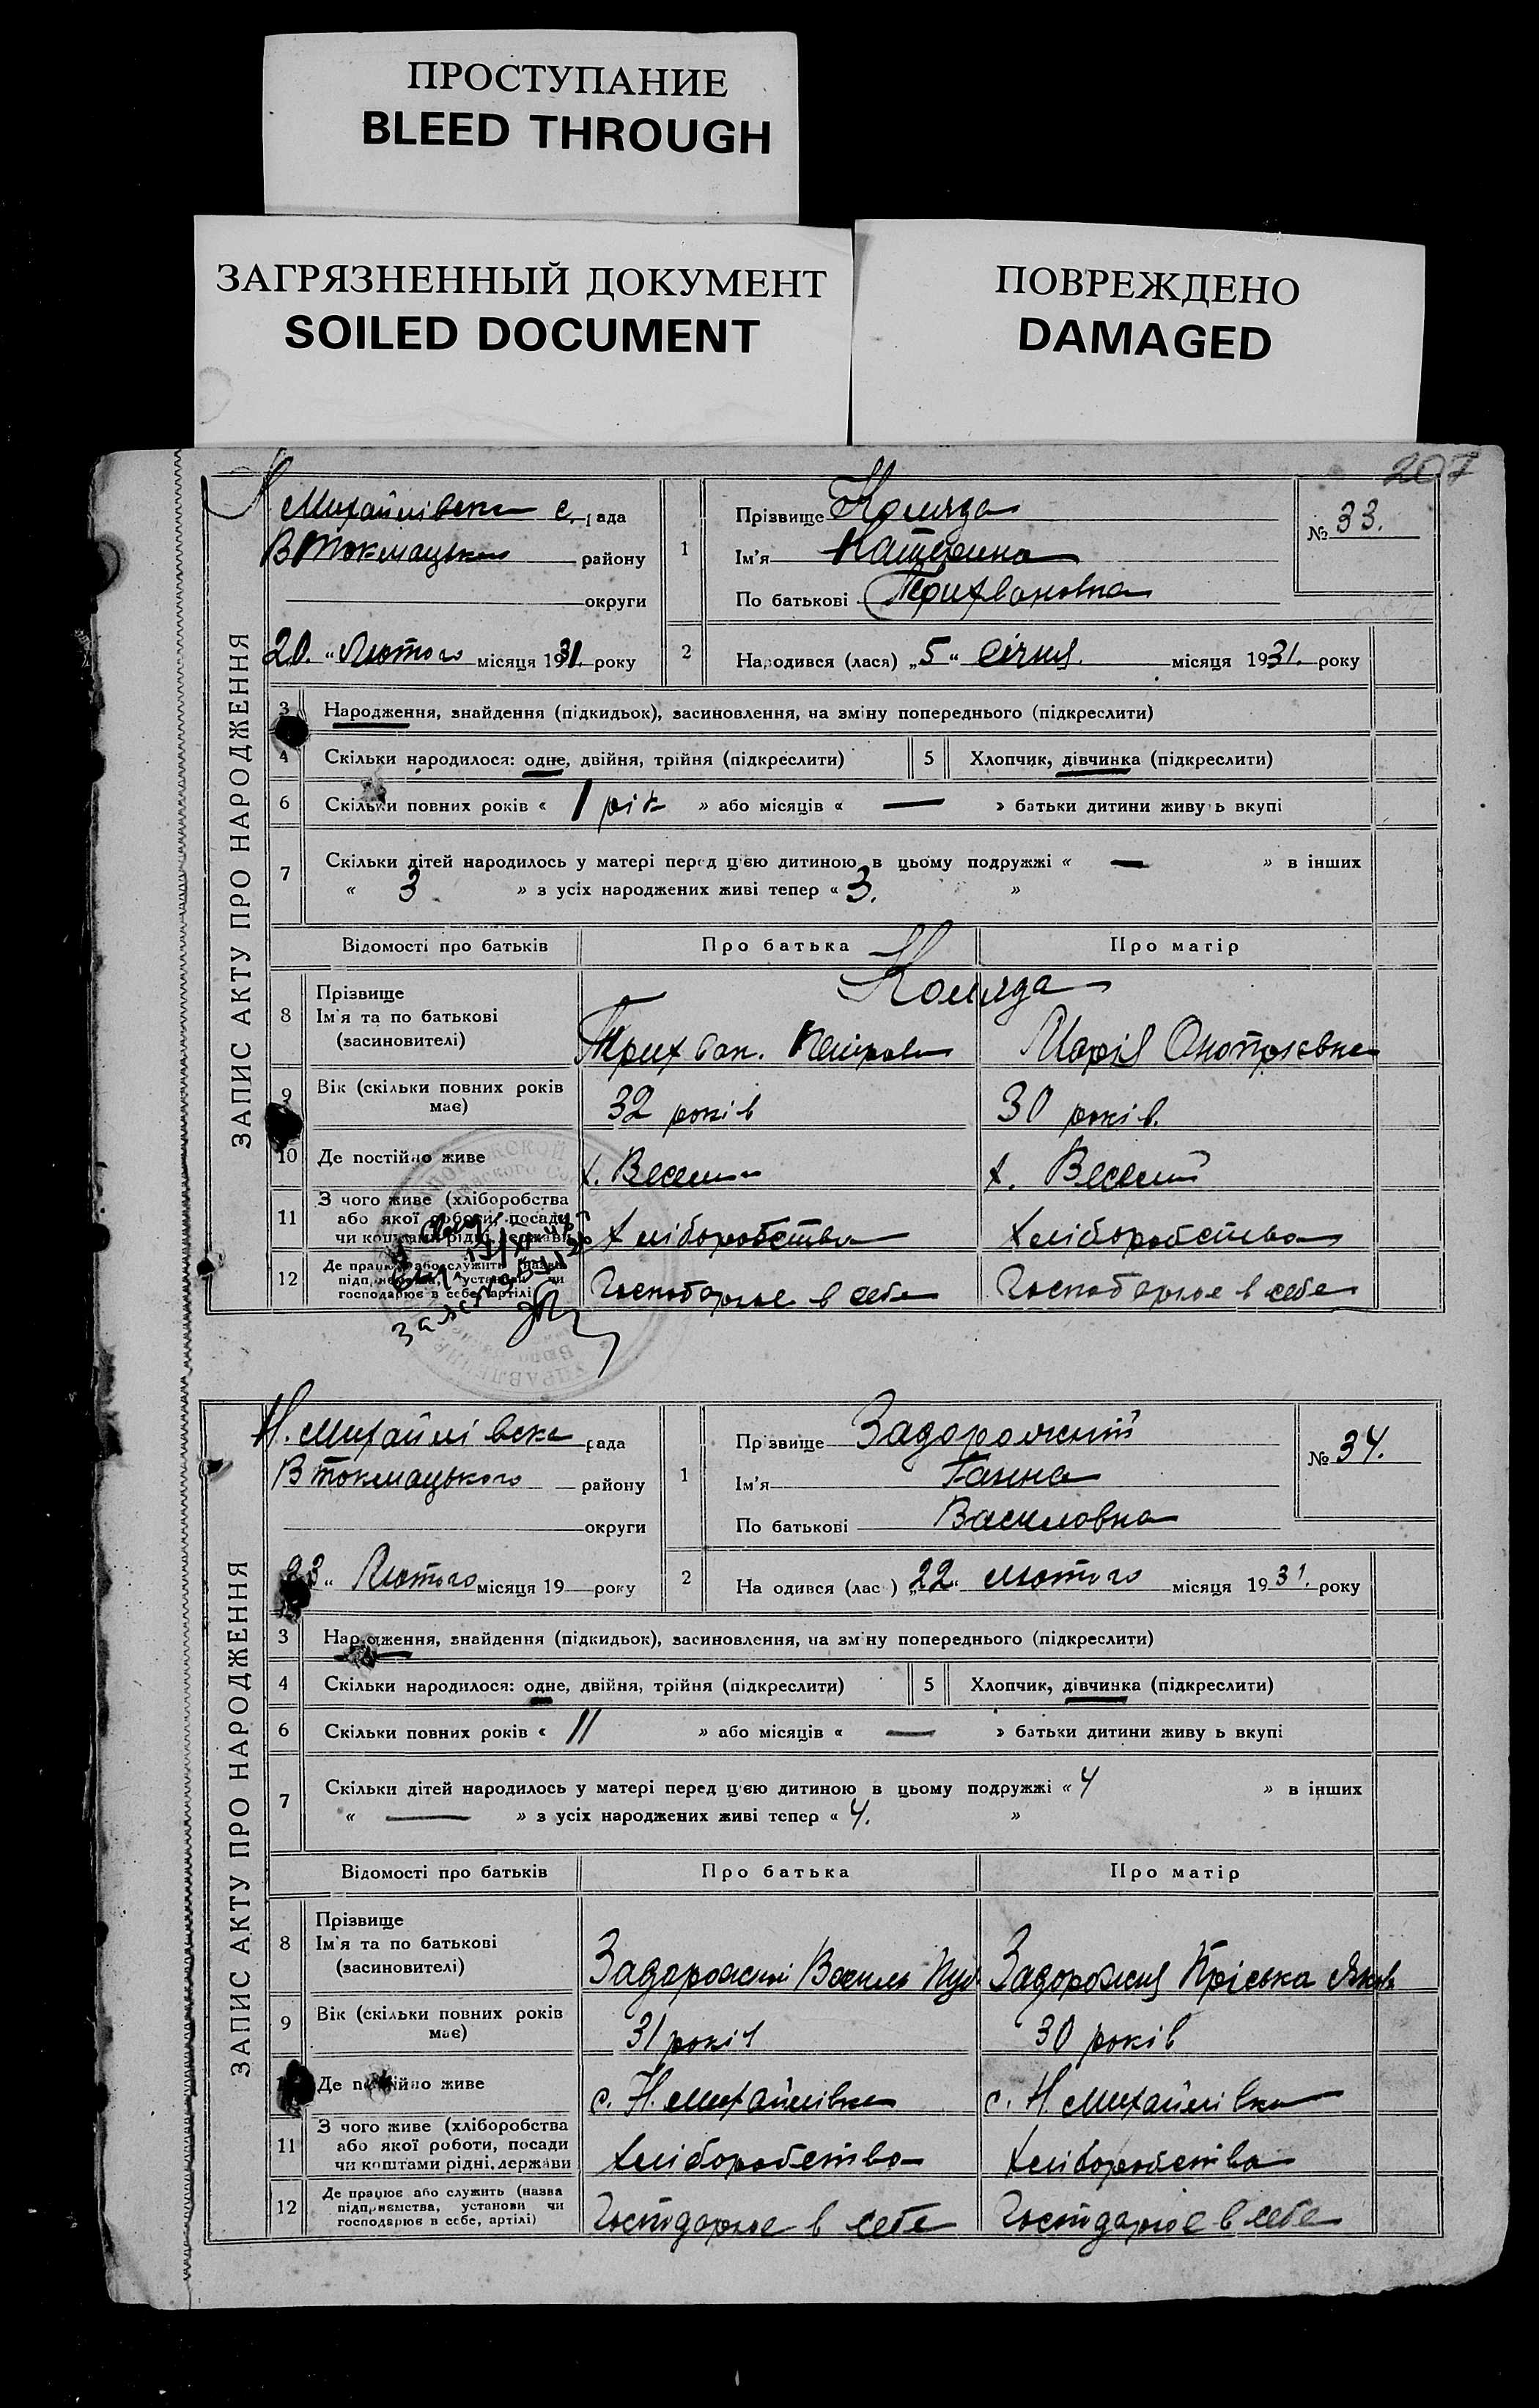 ПРОСТУПАНИЕ
BLEED THROUGH
ЗАГРЯЗНЕННЫЙ ДОКУМЕНТ
SOILED DOCUMENT
ПОВРЕЖДЕНО
DAMAGED
207
ЗАПИС АКТУ ПРО НАРОДЖЕННЯ
Михайлівська с. рада
ВТокмацького району
округи
20 " Лютого місяця 1931. року
1
Прізвище Коляда
Ім'я Катерина
По батькові
№ 33.
2
Народився (лася) „5" Січня. місяця 1931. року
3 Народження, знайдення (підкидьок), засиновлення, на зміну попереднього (підкреслити)
4 Скільки народилося: одне, двійня, трійня (підкреслити)
5 Хлопчик, дівчинка (підкреслити)
6 Скільки повних років « 1 рік » або місяців « — » батьки дитини живуь вкупі
7 Скільки дітей народилось у матері перед цією дитиною в цьому подружжі « — » в інших
« 3 » з усіх народжених живі тепер « 3. »
Відомості про батьків Про батька Про матір
8 Прізвище
Ім'я та по батькові
(засиновителі)
Коляда
Марія
9 Вік (скільки повних років
має)
32 років 30 років.
10 Де постійно живе
х. Веселий х. Веселий
11 З чого живе (хліборобства
або якої роботи, посади
чи коштами рідні, держави
хліборобства хліборобства
12 Де працює або служить (назва
підприємства, установи чи
господарює в себе, артілі)
Господарює в себе Господарює в себе
ЗАПИС АКТУ ПРО НАРОДЖЕННЯ
Н. Михайлівська рада
ВТокмацького району
округи
23" Лютого місяця 19 року
1
Прізвище Задорожній
Ім'я Ганна
По батькові Василовна
№ 34.
2
На одився (лас ) „22" лютого місяця 1931. року
3 Народження, знайдення (підкидьок), засиновлення, на зміну попереднього (підкреслити)
4 Скільки народилося: одне, двійня, трійня (підкреслити)
5 Хлопчик, дівчинка (підкреслити)
6 Скільки повних років « 11 » або місяців « — » батьки дитини живу ь вкупі
7 Скільки дітей народилось у матері перед цією дитиною в цьому подружжі « 4 » в інших
« — » з усіх народжених живі тепер « 4. »
Відомості про батьків Про батька Про матір
8 Прізвище
Ім'я та по батькові
(засиновителі)
Задорожній Василь Задорожня Пріська Яков
9 Вік (скільки повних років
має)
31 років 30 років
Де постійно живе
с. Н. Михайлівка с. Н. Михайлівка
11 З чого живе (хліборобства
або якої роботи, посади
чи коштами рідні, держави
хліборобства хліборобства
12 Де працює або служить (назва
підприємства, установи чи
господарює в себе, артілі)
Господарює в себе Господарює в себе